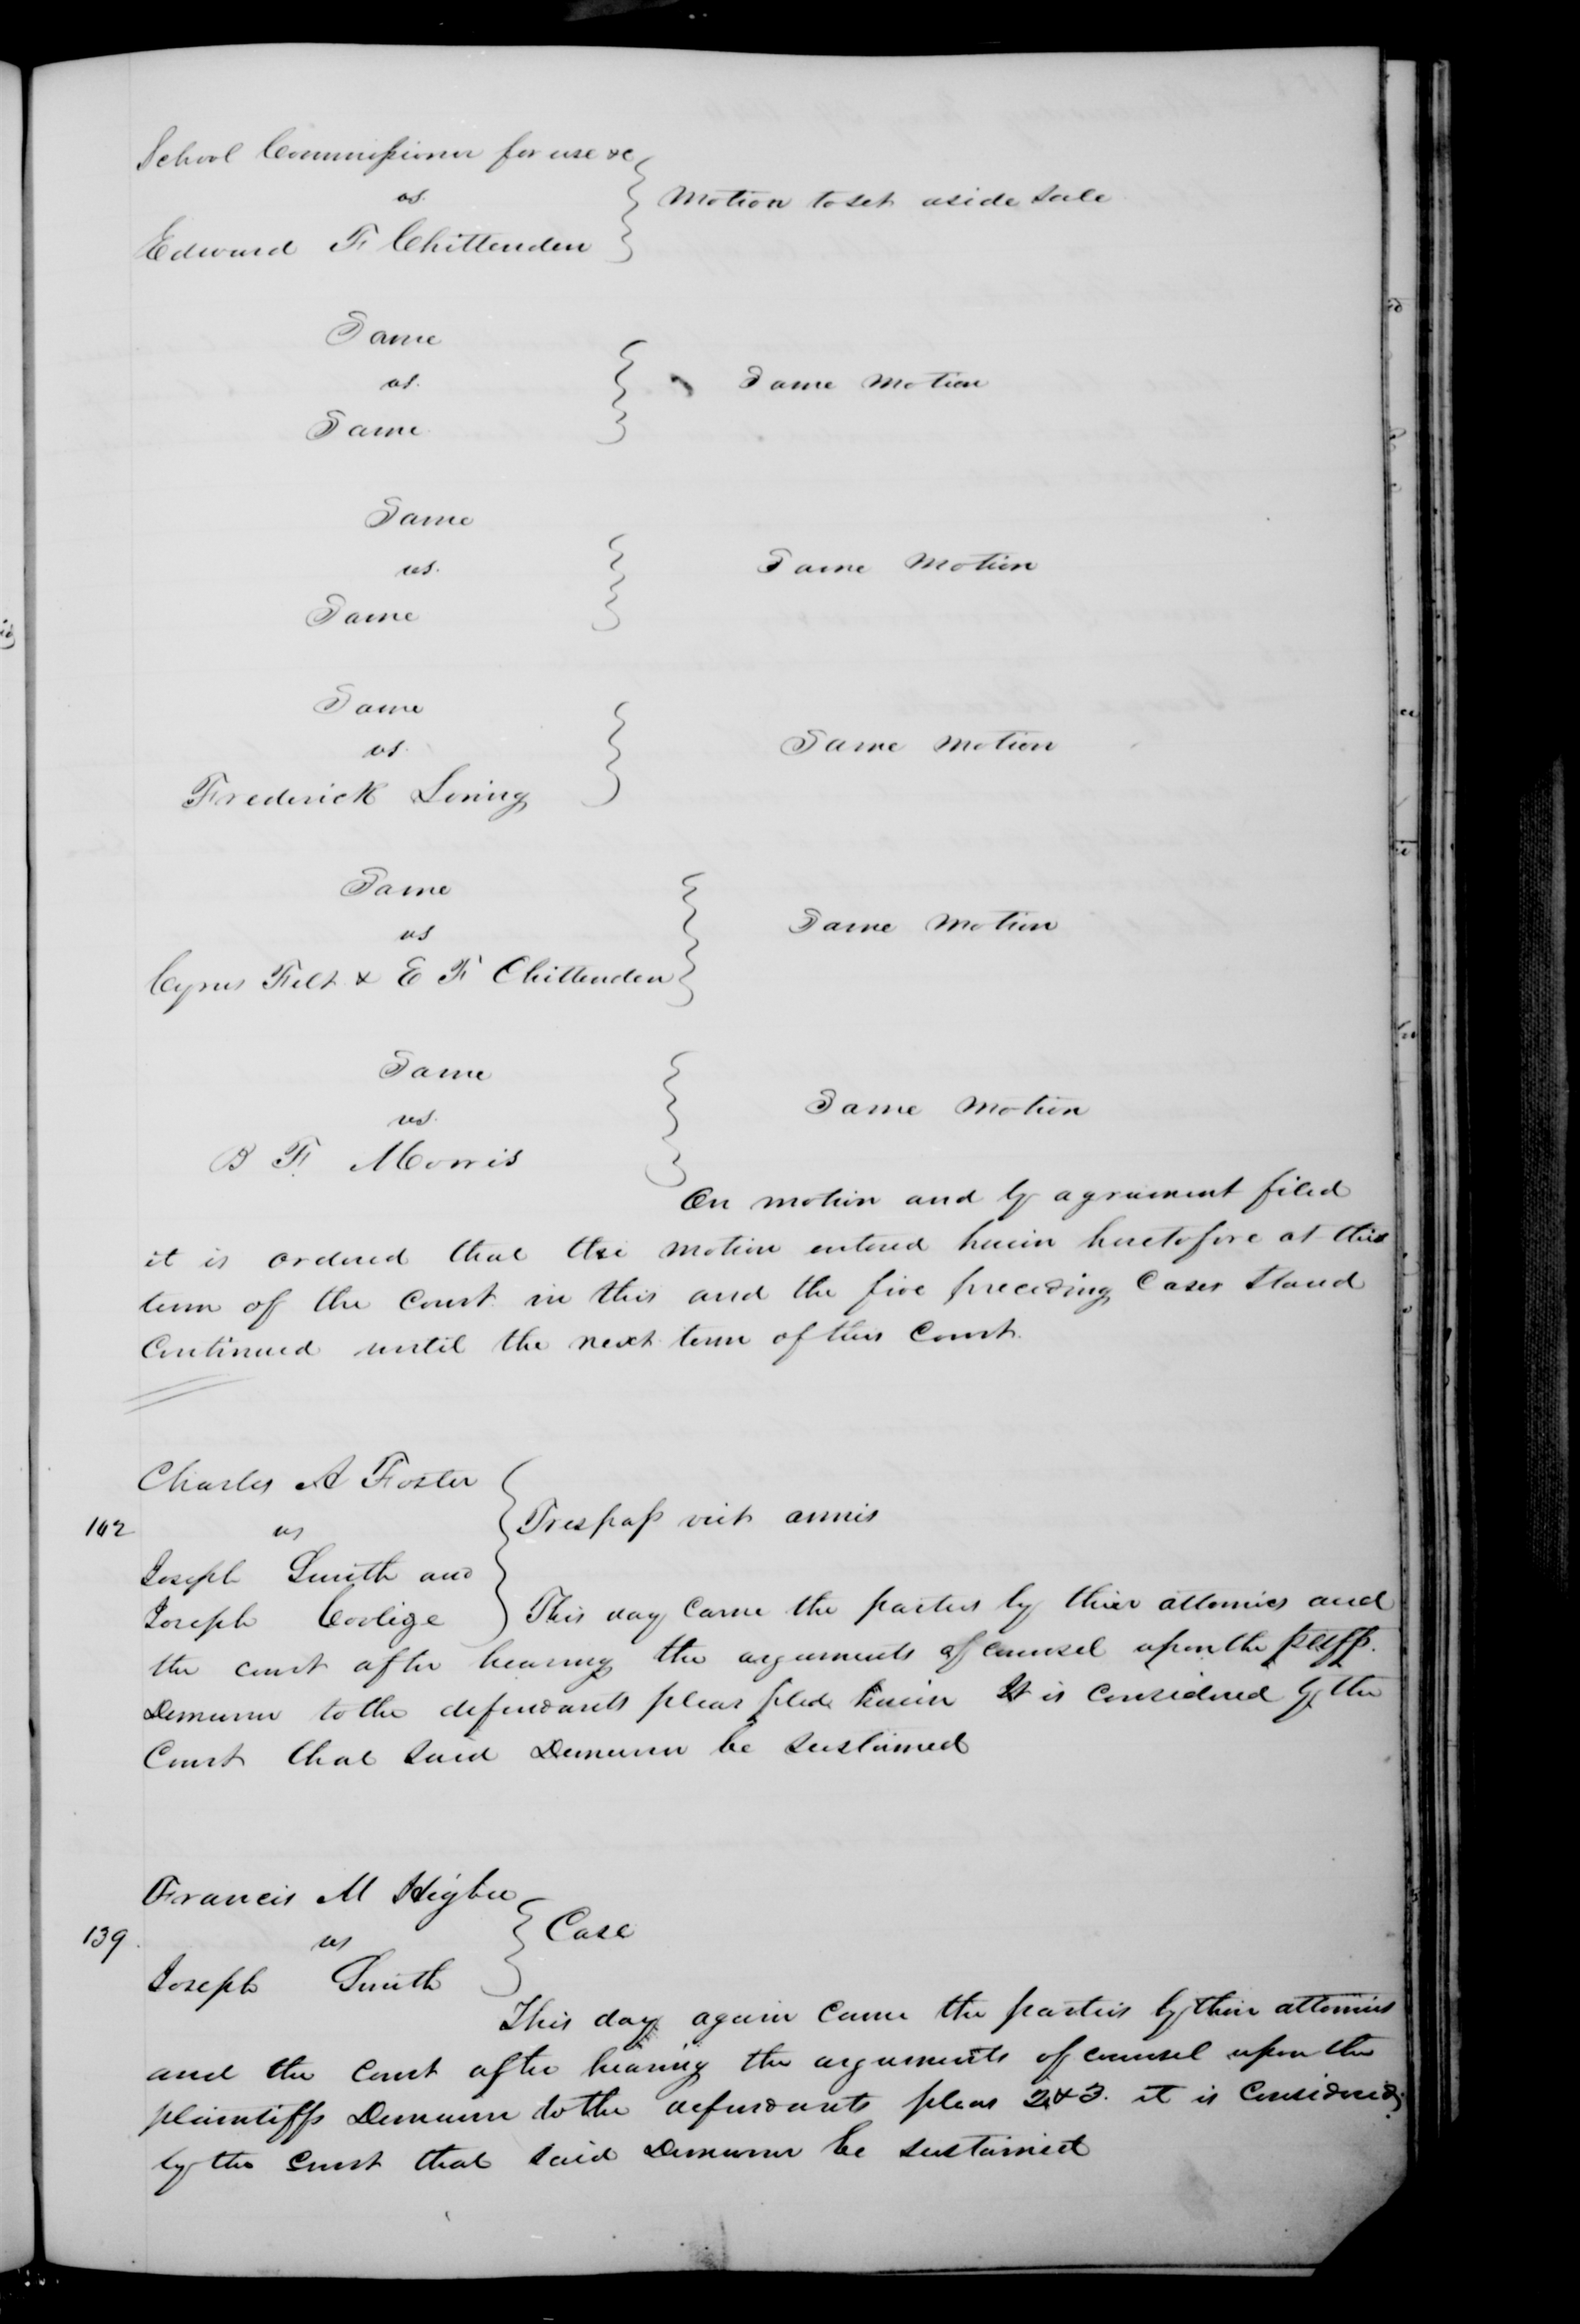 School Commissioner for use &c
vs.
Motion to set aside Sale
Edward F Chittenden
Same
vs.
Same Motion
Same
Same
vs.
Same Motion
Same
Same
vs.
Same Motion
Frederick Loring
Same
vs
Same Motion
Cyrus Felt & E F Chittenden
Same
vs.
Same Motion
B F Morris
On motion and by agreement filed
it is ordered that the motion entered herein heretofore at this
term of the Court in this and the five preceding Cases Stand
Continued until the next term of this Court.
Charles A Foster
102 vs Trespass vi et armis
Joseph Smith and
Joseph Coolige This day Came the parties by thier attornies and
the court after hearing the arguments of counsel upon the plffs.
Demurrer to the defendants pleas filed herein It is Considered by the
Court that Said Demurrer be Sustained
Francis M Higbee
139. vs Case
Joseph Smith
This day again Came the parties by their attornies
and the Court after hearing the arguments of counsel upon the
plaintiffs Demurrer to the defendants pleas 2 & 3. it is Considered
by the Court that Said Demurrer be Sustained